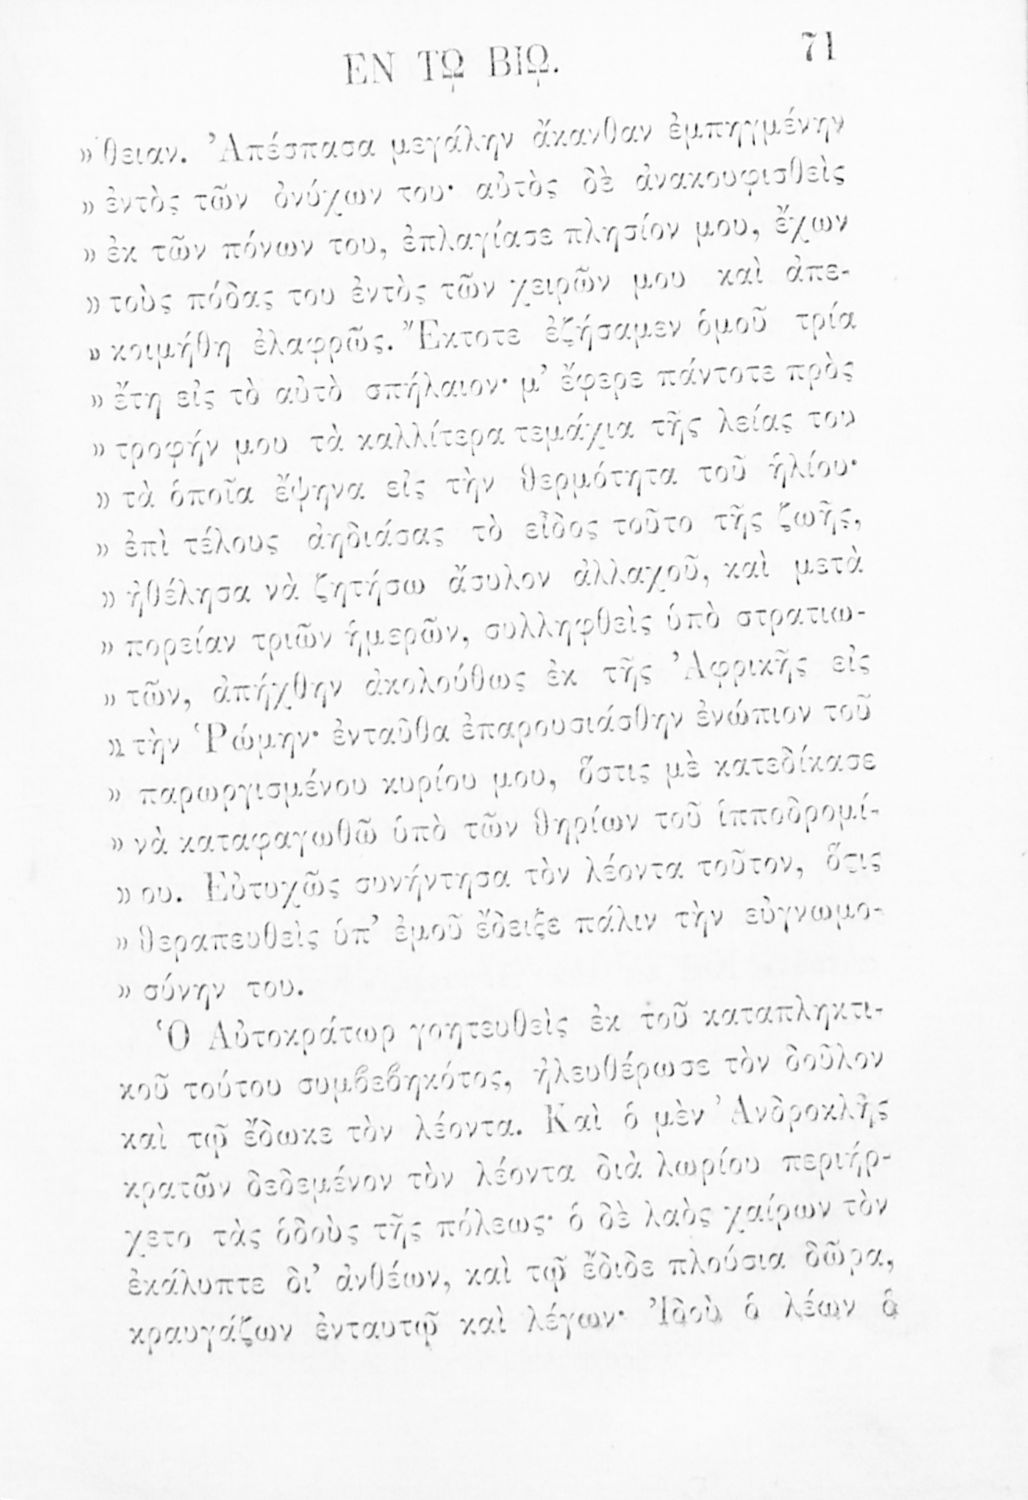 ΕΝ ΤΩ ΒΙΩ. 71
» θειαν. Ἀπέσπασα μεγάλην ἄκανθαν ἐμπηγμένην
» ἐντὸς τῶν ὀνύχων του· αὐτὸς δὲ ἀνακουφισθεὶς
» ἐκ τῶν πόνων του, ἐπλαγίασε πλησίον μου, ἔχων
» τοὺς πόδας του ἐντὸς τῶν χειρῶν μου καὶ ἀπε-
» κοιμήθη ἐλαφρῶς. Ἔκτοτε ἐζήσαμεν ὁμοῦ τρία
» ἔτη εἰς τὸ αὐτὸ σπήλαιον· μ’ ἔφερε πάντοτε πρὸς
» τροφήν μου τὰ καλλίτερα τεμάχια τῆς λείας του
» τὰ ὁποῖα ἔψηνα εἰς τὴν θερμότητα τοῦ ἡλίου·
» ἐπὶ τέλους ἀηδιάσας τὸ εἶδος τοῦτο τῆς ζωῆς,
» ἠθέλησα νὰ ζητήσω ἄσυλον ἀλλαχοῦ, καὶ μετὰ
» πορείαν τριῶν ἡμερῶν, συλληφθεὶς ὑπὸ στρατιω-
» τῶν, ἀπήχθην ἀκολούθως ἐκ τῆς Ἀφρικῆς εἰς
» τὴν Ῥώμην· ἐνταῦθα ἐπαρουσιάσθην ἐνώπιον τοῦ
» παρωργισμένου κυρίου μου, ὅστις μὲ κατεδίκασε
» νὰ καταφαγωθῶ ὑπὸ τῶν θηρίων τοῦ ἱπποδρομί-
» ου. Εὐτυχῶς συνήντησα τὸν λέοντα τοῦτον, ὅςις
» θεραπευθεὶς ὑπ’ ἐμοῦ ἔδειξε πάλιν τὴν εὐγνωμο-
» σύνην του.
Ὁ Αὐτοκράτωρ γοητευθεὶς ἐκ τοῦ καταπληκτι-
κοῦ τούτου συμβεβηκότος, ἠλευθέρωσε τὸν δοῦλον
καὶ τῷ ἔδωκε τὸν λέοντα. Καὶ ὁ μὲν Ἀνδροκλῆς
κρατῶν δεδεμένον τὸν λέοντα διὰ λωρίου περιήρ-
χετο τὰς ὁδοὺς τῆς πόλεως· ὁ δὲ λαὸς χαίρων τὸν
ἐκάλυπτε δι’ ἀνθέων, καὶ τῷ ἔδιδε πλούσια δῶρα,
κραυγάζων ἐνταυτῷ καὶ λέγων· Ἰδοὺ ὁ λέων ὁ